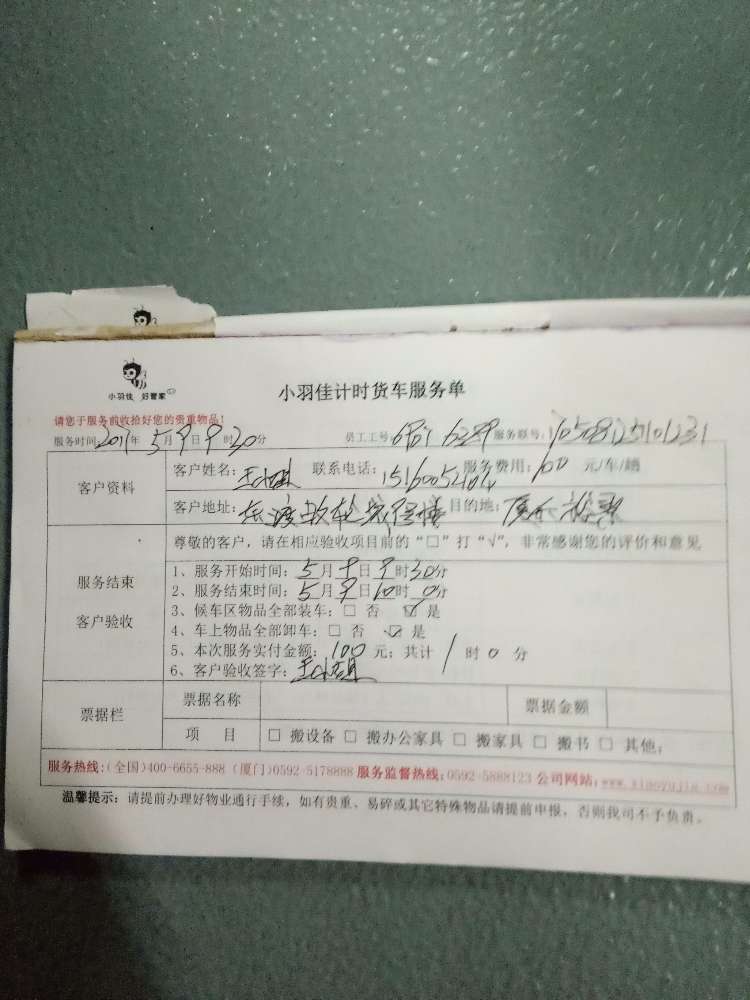 小羽佳 好管家
小羽佳计时货车服务单
请您于服务前收拾好您的贵重物品!
服务时间:2017年5月9日9时30分 员工工号: 服务联号:
客户资料
客户姓名: 联系电话: 服务费用: 元/车/趟
客户地址: 目的地:
尊敬的客户，请在相应验收项目前的“□”打“√”，非常感谢您的评价和意见
服务结束
客户验收
1、服务开始时间:5月9日9时30分
2、服务结束时间:5月9日10时0分
3、候车区物品全部装车:□ 否 ☑ 是
4、车上物品全部卸车:□ 否 ☑ 是
5、本次服务实付金额:100元;共计1时0分
6、客户验收签字:
票据栏
票据名称 票据金额
项 目 □ 搬设备 □ 搬办公家具 □ 搬家具 □ 搬书 □ 其他:
服务热线:(全国)400-6655-888 (厦门)0592-5178888 服务监督热线:0592-5888123 公司网站:www.xiaoyujia.com
温馨提示: 请提前办理好物业通行手续，如有贵重、易碎或其它特殊物品请提前申报，否则我司不予负责。